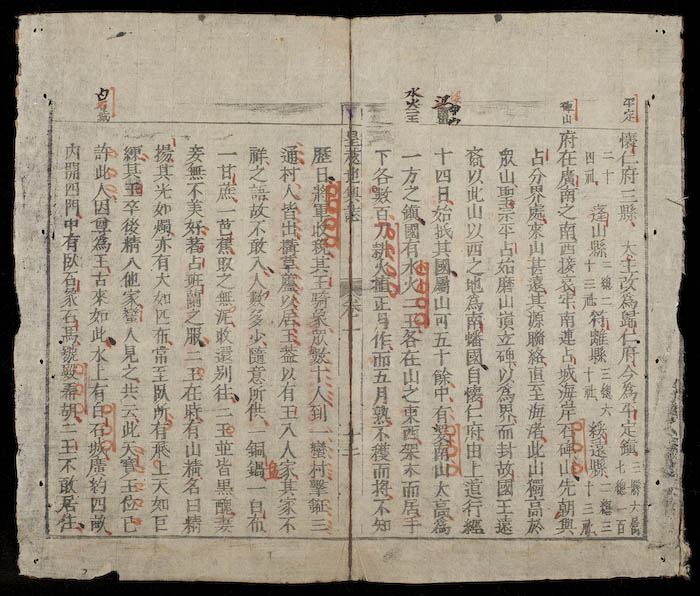 平定
懷仁府三縣 大王改為歸仁府今為平定鎮 三縣六屬七總一百
二十四社 蓬山縣 三總二十三社 符離縣 三總六十社 綏遠縣 二總三十三社
碑山
府在廣南之南西接哀牢南連占城海岸石碑山先朝與
占分界處來山甚遠其源聯絡直至海渚此山獨高於
眾山聖宗平占始磨山嶺立碑以為界而封故國王遠
裔以此山以西之地為南蟠國自懷仁府由上道行經
十四日始抵其國屬山可五十餘中有愛南山太高為
水火二王
一方之鎮國有水火二王各在山之東西架木而居手
下各數百刀耕火種正月作而五月熟不穫而將不知
皇越地輿誌 卷一 十二
歷日將軍收稅其王騎象眾數十人到一蠻村擊鉦三
通村人皆出搭草廬以居王蓋以有王入人家其家不
祥之語故不敢入人數多少隨意所供一銅鍋一白布
一甘蔗一芭蕉取之無泥收還別往二王並皆黑醜妻
妾無不美好著占班蘭之服二王在時有山積名曰精
揚其光如燭亦有大如匹布常至臥所有飛上天如巨
練其王卒後精入他家蠻人見之共云此天寶王位已
占石城
許此人因尊為王古來如此水上有白石城廣約四畝
內開四門中有臥石象石馬號婆番胡二王不敢居住